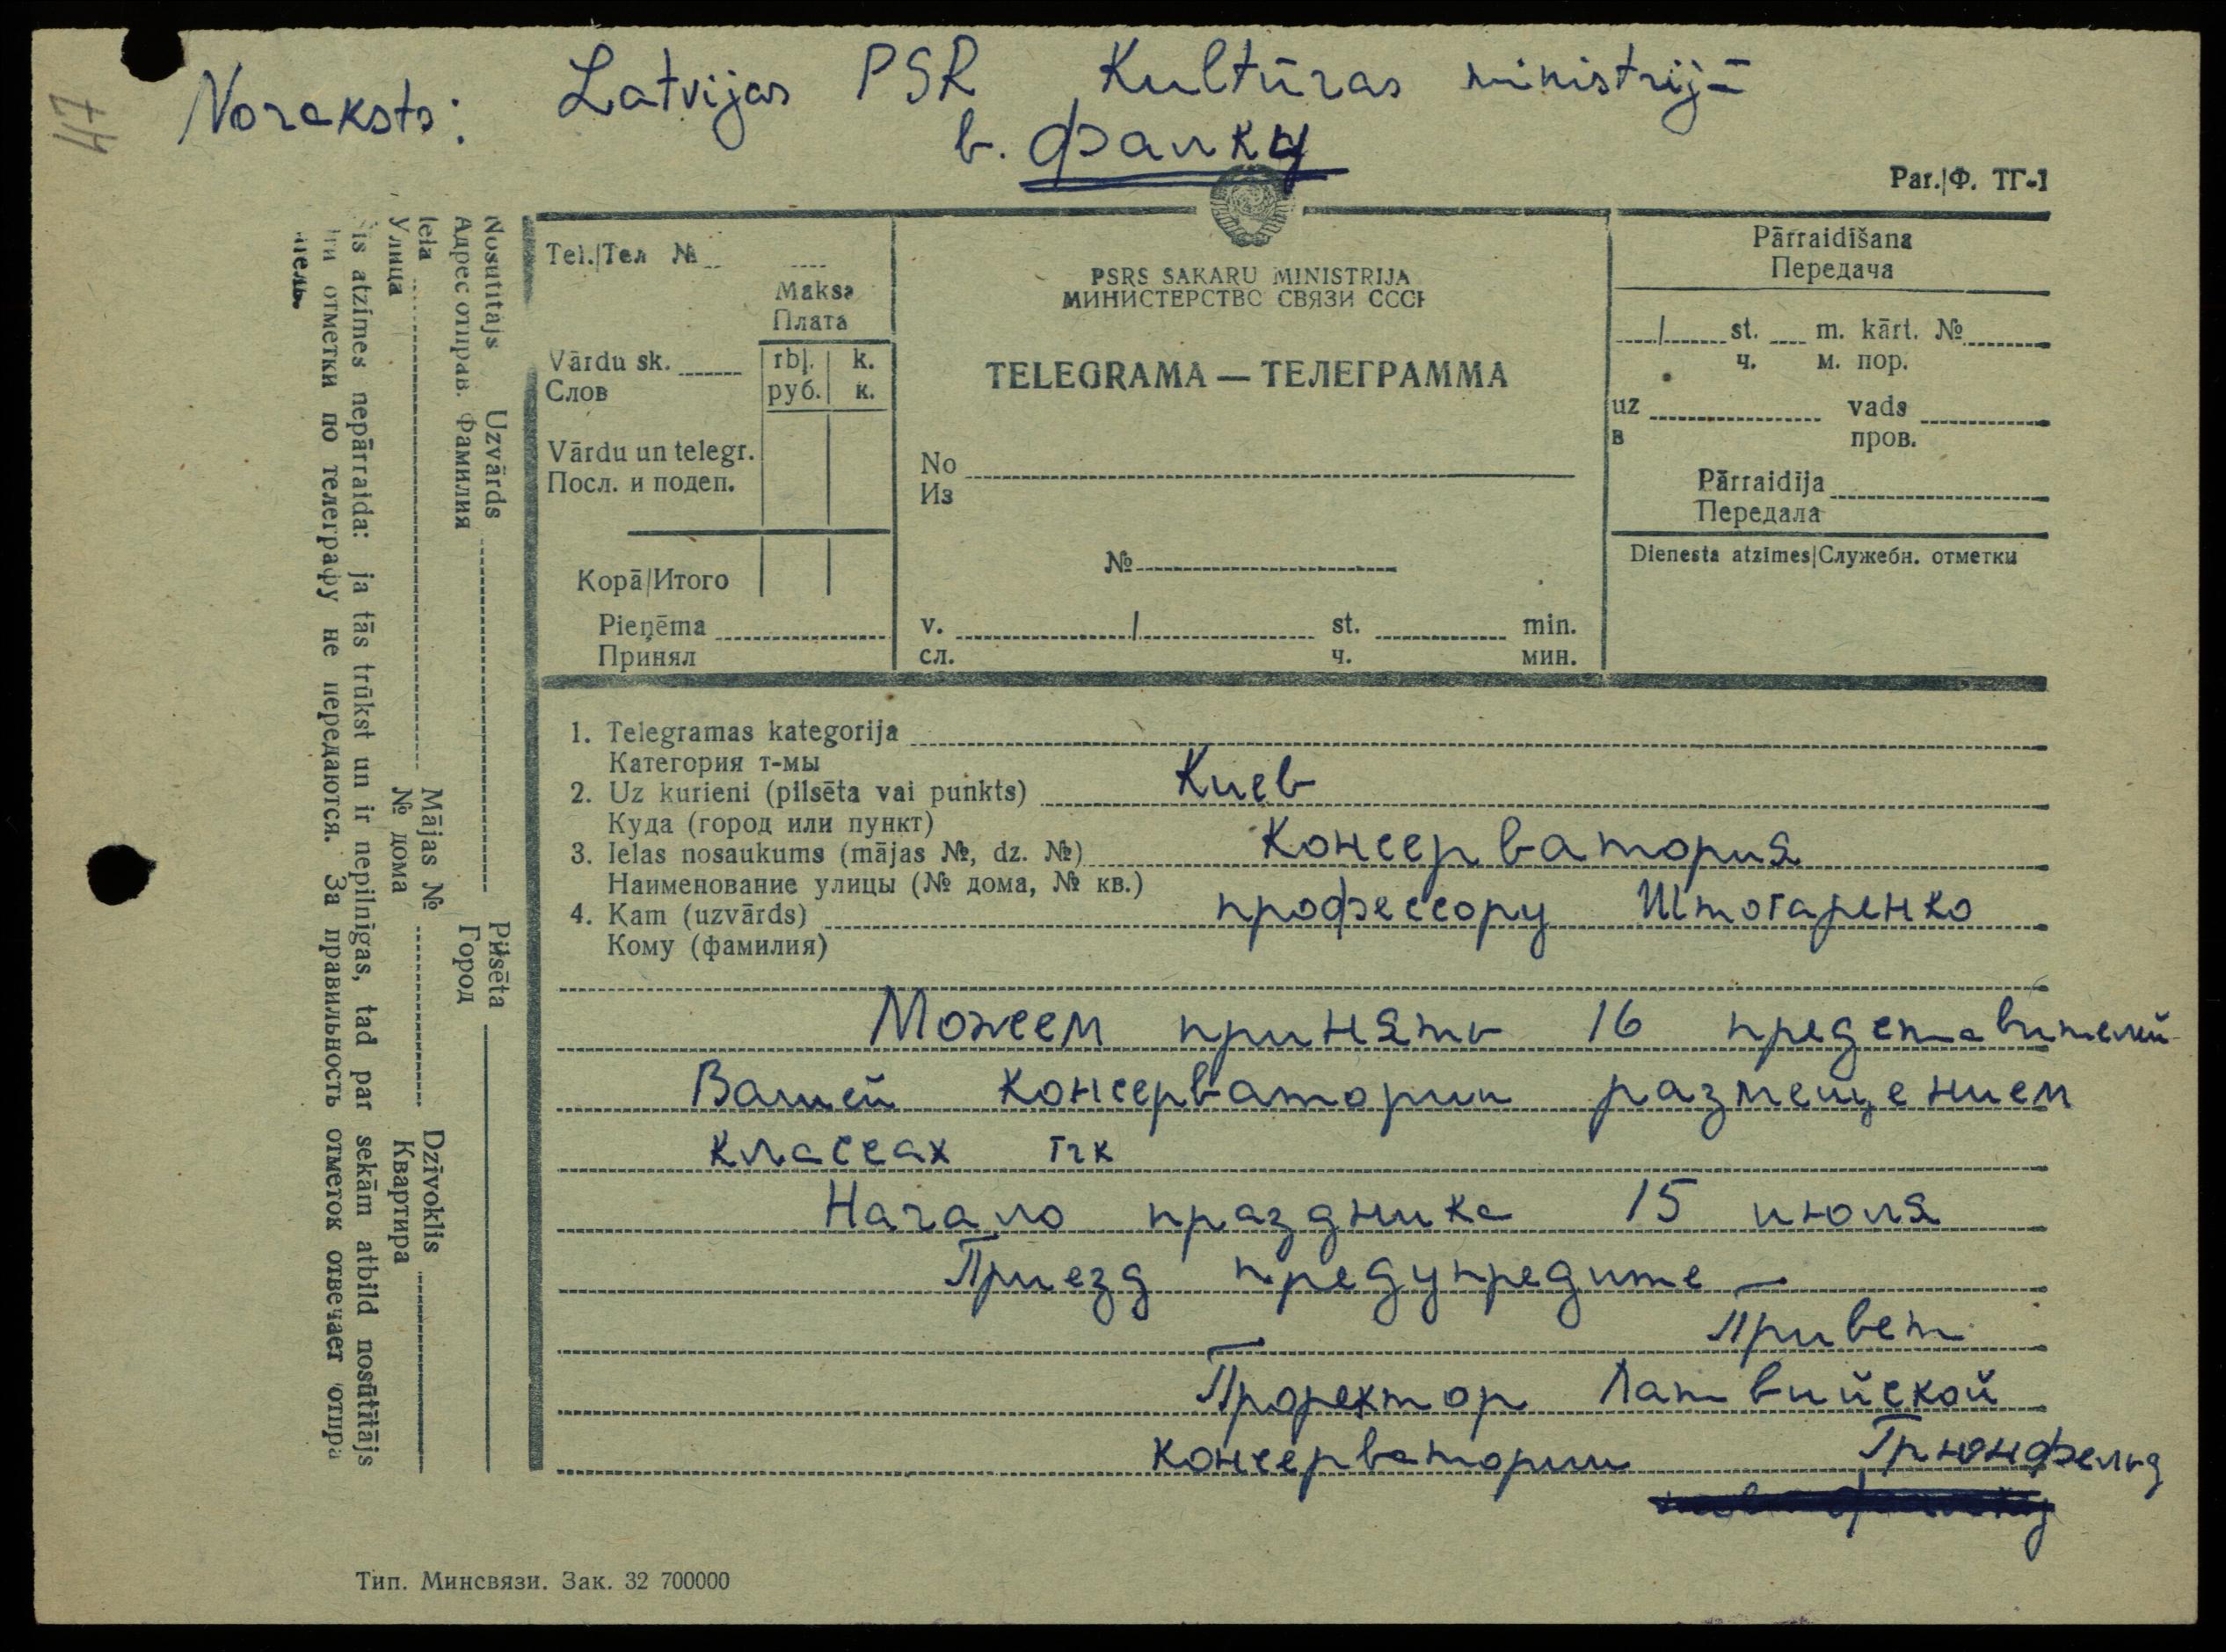 47
Noraksts: Latvijas PSR Kultūras ministrijā
b. Фалку
Par.|Ф. ТГ-1
Tel.|Тел №
Maksa
Плата
Vārdu sk.
Слов
rbļ. k.
руб. к.
Vārdu un telegr.
Посл. и подеп.
Kopā|Итого
Pieņēma
Принял
PSRS SAKARU MINISTRIJA
МИНИСТЕРСТВО СВЯЗИ СССР
TELEGRAMA — ТЕЛЕГРАММА
No
Из
№
v. / st. min.
сл. ч. мин.
Pārraidīšana
Передача
/ st. m. kārt. №
ч. м. пор.
uz vads
в пров.
Pārraidīja
Передала
Dienesta atzīmes|Служебн. отметки
Nosūtītājs Uzvārds Pilsēta
Адрес отправ. Фамилия Город
Iela Mājas № Dzīvoklis
Улица № дома Квартира
is atzīmes nepārraida: ja tās trūkst un ir nepilnīgas, tad par sekām atbild nosūtītājs
ти отметки по телеграфу не передаются. За правильность отметок отвечает отпра
итель.
1. Telegramas kategorija
Категория т-мы
2. Uz kurieni (pilsēta vai punkts) Киев
Куда (город или пункт)
3. Ielas nosaukums (mājas №, dz. №) Консерватория
Наименование улицы (№ дома, № кв.)
4. Kam (uzvārds) профессору Штогаренко
Кому (фамилия)
Можем принять 16 представителей
Вашей консерватории размещением
классах тчк
Начало праздника 15 июля
Приезд предупредите —
Привет
Проректор Латвийской
консерватории Грюнфельд
Тип. Минсвязи. Зак. 32 700000